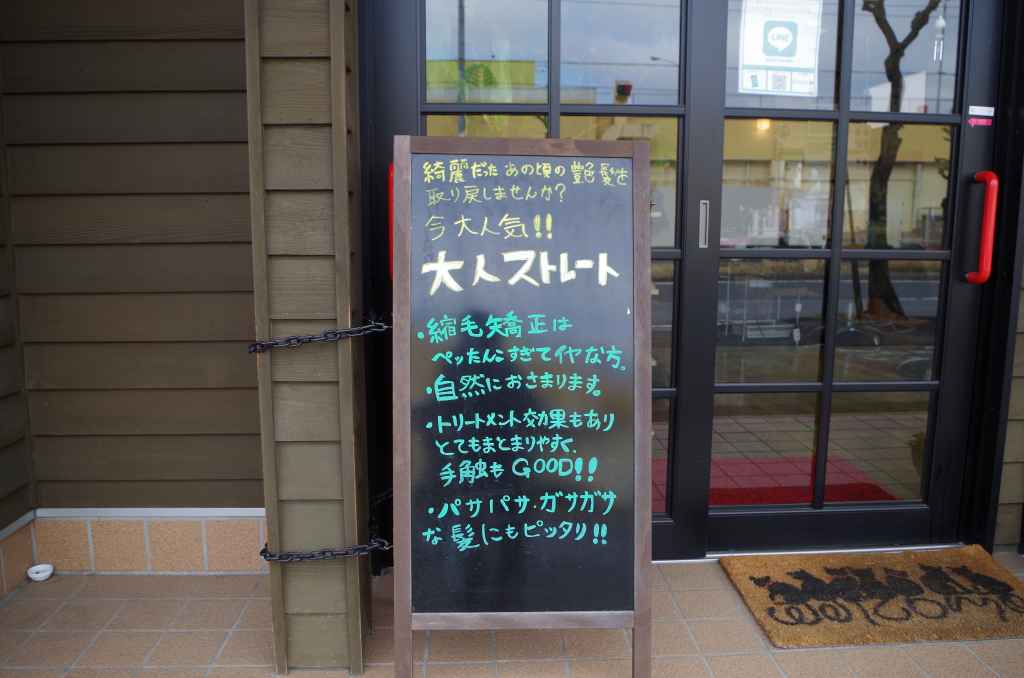 LINE
綺麗だった あの頃の 艶髪を
取り戻しませんか?
今 大人気!!
大人ストレート
・縮毛矯正は
ペッたんこすぎてイヤな方。
・自然におさまります。
・トリートメント効果もあり
とてもまとまりやすく、
手触も GOOD!!
・パサパサ・ガサガサ
な髪にもピッタリ!!